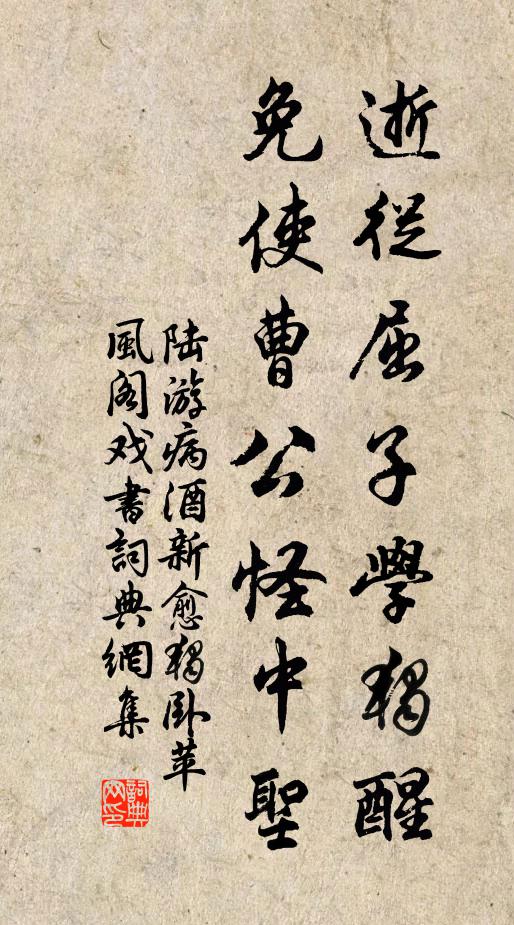 逝從屈子學獨醒
免使曹公怪中聖
陆游病酒新愈獨卧苹
風阁戏書詞典網集
詞典网印